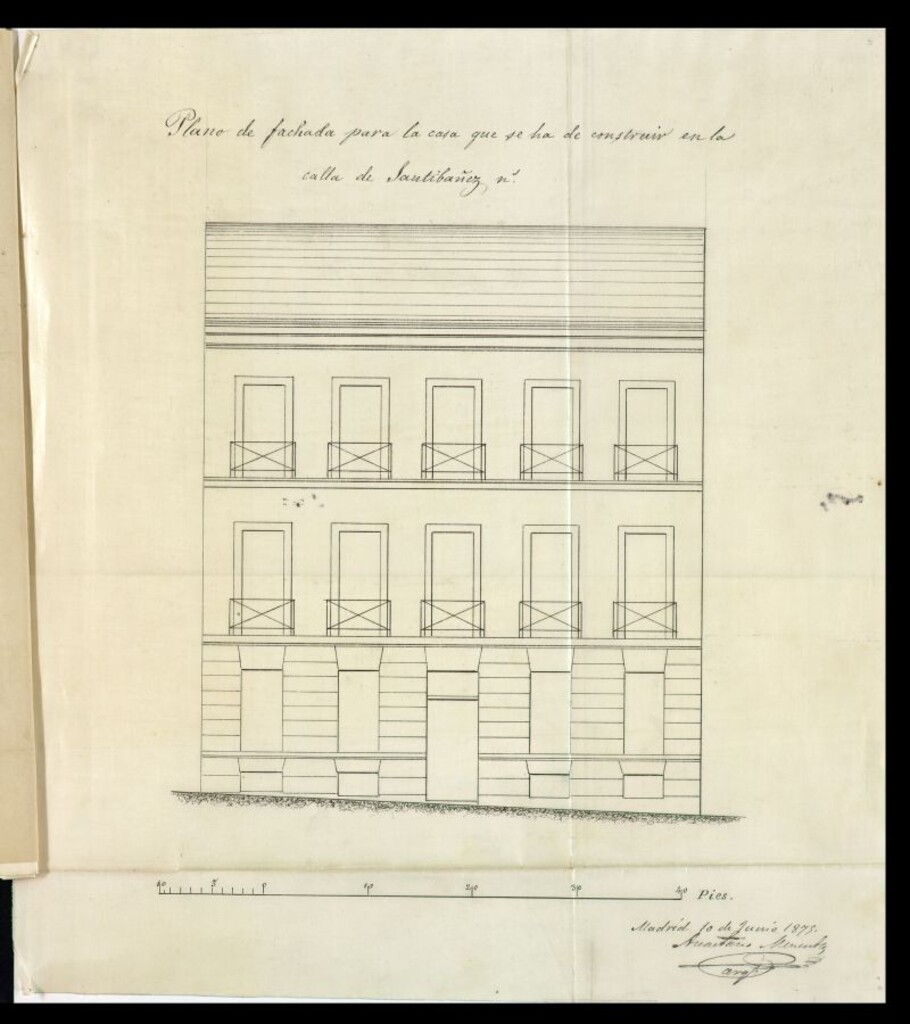 Plano de fachada para la casa que se ha de construir en la
calla de Santibañez, nº
10 5 0 10 20 30 40 Pies.
Madrid 10 de Junio 187
arqº